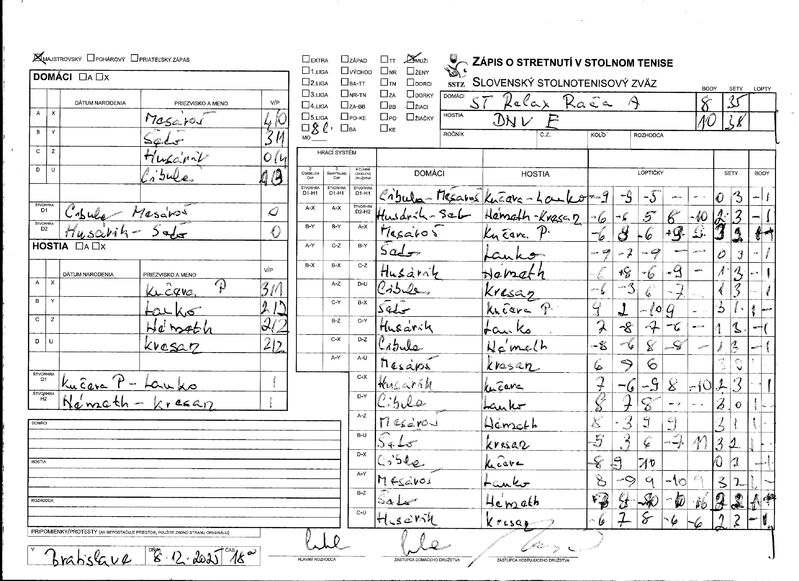 MAJSTROVSKÝ POHÁROVÝ PRIATEĽSKÝ ZÁPAS
DOMÁCI A X
DÁTUM NARODENIA PRIEZVISKO A MENO V/P
A X Mesároš 4/0
B Y Šado 3/1
C Z Husárik 0/4
D U Cibula
ŠTVORHRA D1 Cibula Mesároš 0
ŠTVORHRA D2 Husárik - Šado 0
HOSTIA A X
DÁTUM NARODENIA PRIEZVISKO A MENO V/P
A X Kučera P 3/1
B Y Lauko 2/2
C Z Németh 2/2
D U Kresan 2/2
ŠTVORHRA D1 Kučera P - Lauko 1
ŠTVORHRA H2 Németh - Kresan 1
DOMÁCI
HOSTIA
ROZHODCA
PRIPOMIENKY/PROTESTY (AK NEPOSTAČUJE PRIESTOR, POUŽITE ZADNÚ STRANU ORIGINÁLU)
V Bratislave DŇA 8.12.2025 ČAS 18⁰⁰
EXTRA ZÁPAD TT MUŽI
1.LIGA VÝCHOD NR ŽENY
2.LIGA BA-TT TN DORCI
3.LIGA NR-TN ZA DORKY
4.LIGA ZA-BB BB ŽIACI
5.LIGA PO-KE PO ŽIAČKY
8 l. BA KE
MO
SSTZ
ZÁPIS O STRETNUTÍ V STOLNOM TENISE
SLOVENSKÝ STOLNOTENISOVÝ ZVÄZ
BODY SETY LOPTY
DOMÁCI ŠT Relax Rača A 8 35
HOSTIA DNV E 10 38
ROČNÍK Č.Z. KOLO ROZHODCA
HRACÍ SYSTÉM DOMÁCI HOSTIA LOPTIČKY SETY BODY
ŠTVORHRA D1-H1 ŠTVORHRA D1-H1 ŠTVORHRA D1-H1 Cibula - Mesároš Kučera - Lauko -9 -9 -5 - - 0 3 - 1
A-X A-X ŠTVORHRA D2-H2 Husárik - Šado Németh - Kresan -6 -6 5 8 -10 2 3 - 1
B-Y B-Y A-X Mesároš Kučera P.
A-Y C-Z B-Y Šado Lauko -9 -7 -9 - - 0 3 - 1
B-X B-X C-Z Husárik Németh -6 +8 -6 -9 - 1 3 - 1
A-Z D-U Cibula Kresan -6 -3 6 -7 1 3 - 1
C-Y B-X Šado Kučera P 9 2 -10 9 - 3 1 1 -
B-Z C-Y Husárik Lauko 7 -8 -7 -6 - 1 3 - 1
C-X D-Z Cibula Németh -8 -6 8 -8 - 1 3 - 1
A-Y A-U Mesároš Kresan 6 9 6
C-X Husárik Kučera 7 -6 -9 8 -10 2 3 - 1
D-Y Cibula Lauko 8 7 8 - - 3 0 1 -
A-Z Mesároš Németh 8 -3 9 9 3 1 1
B-U Šado Kresan -5 3 6 -7 11 3 2 1
D-X Cibula Kučera -8 -9 -10 0 3 - 1
A-Y Mesároš Lauko 8 -9 9 -10 9 3 2 1
B-Z Šado Németh
C-U Husárik Kresan -6 7 8 -6 -6 2 3 - 1
HLAVNÝ ROZHODCA ZÁSTUPCA DOMÁCEHO DRUŽSTVA ZÁSTUPCA HOSŤUJÚCEHO DRUŽSTVA